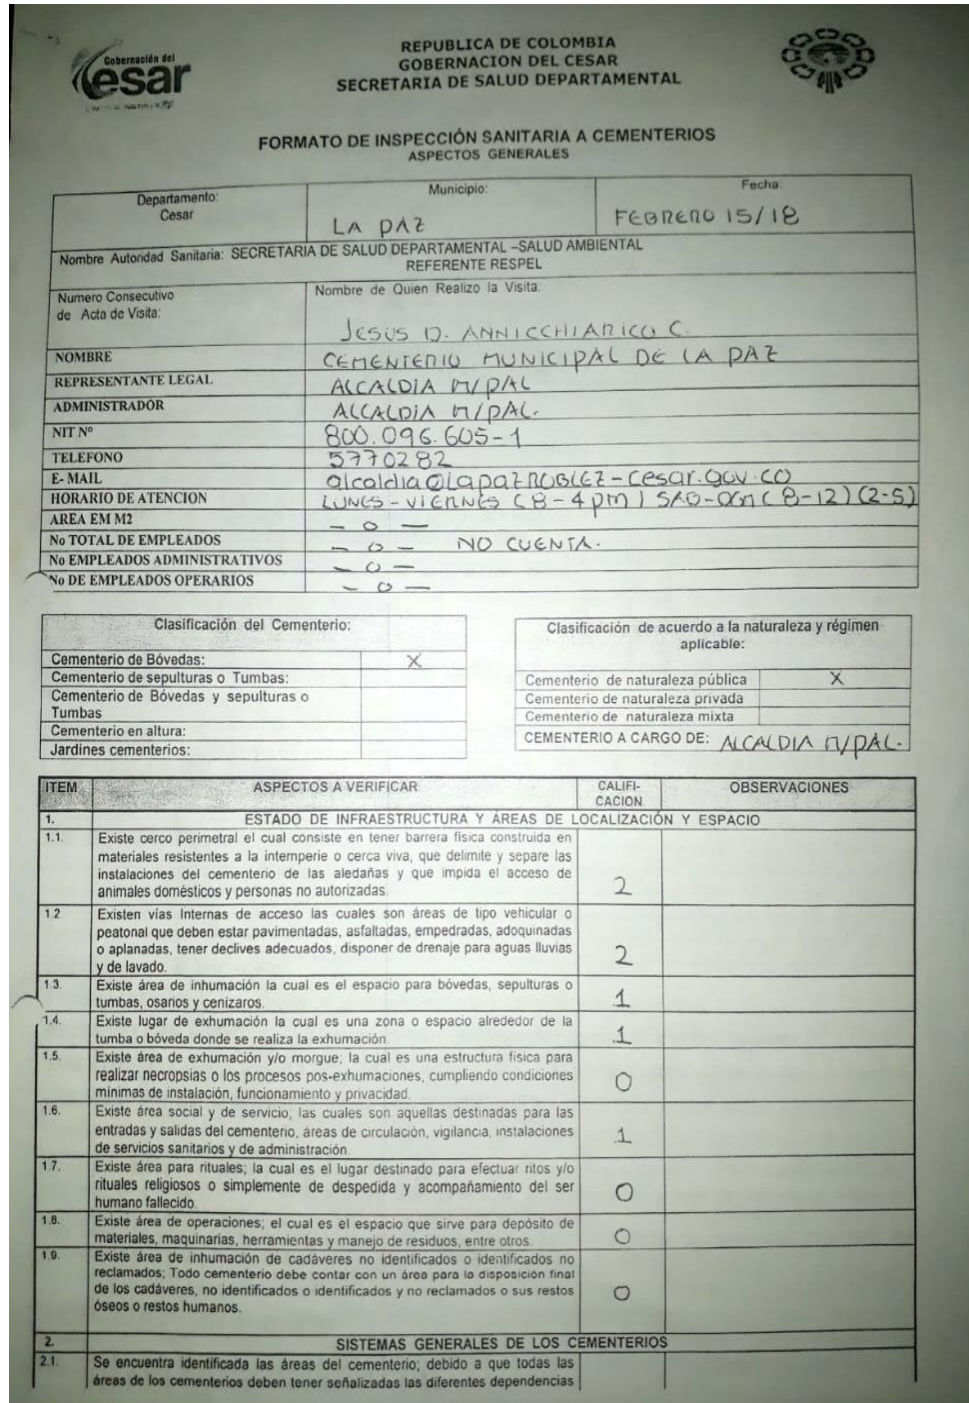 Gobernación del
Cesar
REPUBLICA DE COLOMBIA
GOBERNACION DEL CESAR
SECRETARIA DE SALUD DEPARTAMENTAL
FORMATO DE INSPECCIÓN SANITARIA A CEMENTERIOS
ASPECTOS GENERALES
Departamento:
Cesar
Municipio:
LA PAZ
Fecha:
FEBRERO 15/18
Nombre Autoridad Sanitaria: SECRETARIA DE SALUD DEPARTAMENTAL –SALUD AMBIENTAL
REFERENTE RESPEL
Numero Consecutivo
de Acta de Visita:
Nombre de Quien Realizo la Visita:
JESUS D. ANNICCHIARICO C.
NOMBRE CEMENTERIO MUNICIPAL DE LA PAZ
REPRESENTANTE LEGAL ALCALDIA M/PAL
ADMINISTRADOR ALCALDIA M/PAL.
NIT Nº 800.096.605-1
TELEFONO 5770282
E- MAIL alcaldia@LapazROBLEZ-cesar.gov.co
HORARIO DE ATENCION LUNES-VIERNES (8-4pm) SAD-DOM (8-12)(2-5)
AREA EM M2 - 0 -
No TOTAL DE EMPLEADOS - 0 - NO CUENTA.
No EMPLEADOS ADMINISTRATIVOS - 0 -
No DE EMPLEADOS OPERARIOS - 0 -
Clasificación del Cementerio:
Cementerio de Bóvedas: X
Cementerio de sepulturas o Tumbas:
Cementerio de Bóvedas y sepulturas o
Tumbas
Cementerio en altura:
Jardines cementerios:
Clasificación de acuerdo a la naturaleza y régimen
aplicable:
Cementerio de naturaleza pública X
Cementerio de naturaleza privada
Cementerio de naturaleza mixta
CEMENTERIO A CARGO DE: ALCALDIA M/PAL.
ITEM ASPECTOS A VERIFICAR CALIFI-
CACION OBSERVACIONES
1. ESTADO DE INFRAESTRUCTURA Y ÁREAS DE LOCALIZACIÓN Y ESPACIO
1.1. Existe cerco perimetral el cual consiste en tener barrera física construida en
materiales resistentes a la intemperie o cerca viva, que delimite y separe las
instalaciones del cementerio de las aledañas y que impida el acceso de
animales domésticos y personas no autorizadas. 2
1.2 Existen vías Internas de acceso las cuales son áreas de tipo vehicular o
peatonal que deben estar pavimentadas, asfaltadas, empedradas, adoquinadas
o aplanadas, tener declives adecuados, disponer de drenaje para aguas lluvias
y de lavado. 2
1.3. Existe área de inhumación la cual es el espacio para bóvedas, sepulturas o
tumbas, osarios y cenizaros. 1
1.4. Existe lugar de exhumación la cual es una zona o espacio alrededor de la
tumba o bóveda donde se realiza la exhumación. 1
1.5. Existe área de exhumación y/o morgue; la cual es una estructura física para
realizar necropsias o los procesos pos-exhumaciones, cumpliendo condiciones
mínimas de instalación, funcionamiento y privacidad. 0
1.6. Existe área social y de servicio; las cuales son aquellas destinadas para las
entradas y salidas del cementerio, áreas de circulación, vigilancia, instalaciones
de servicios sanitarios y de administración. 1
1.7. Existe área para rituales; la cual es el lugar destinado para efectuar ritos y/o
rituales religiosos o simplemente de despedida y acompañamiento del ser
humano fallecido. 0
1.8. Existe área de operaciones; el cual es el espacio que sirve para depósito de
materiales, maquinarias, herramientas y manejo de residuos, entre otros. 0
1.9. Existe área de inhumación de cadáveres no identificados o identificados no
reclamados; Todo cementerio debe contar con un área para la disposición final
de los cadáveres, no identificados o identificados y no reclamados o sus restos
óseos o restos humanos. 0
2. SISTEMAS GENERALES DE LOS CEMENTERIOS
2.1. Se encuentra identificada las áreas del cementerio; debido a que todas las
áreas de los cementerios deben tener señalizadas las diferentes dependencias